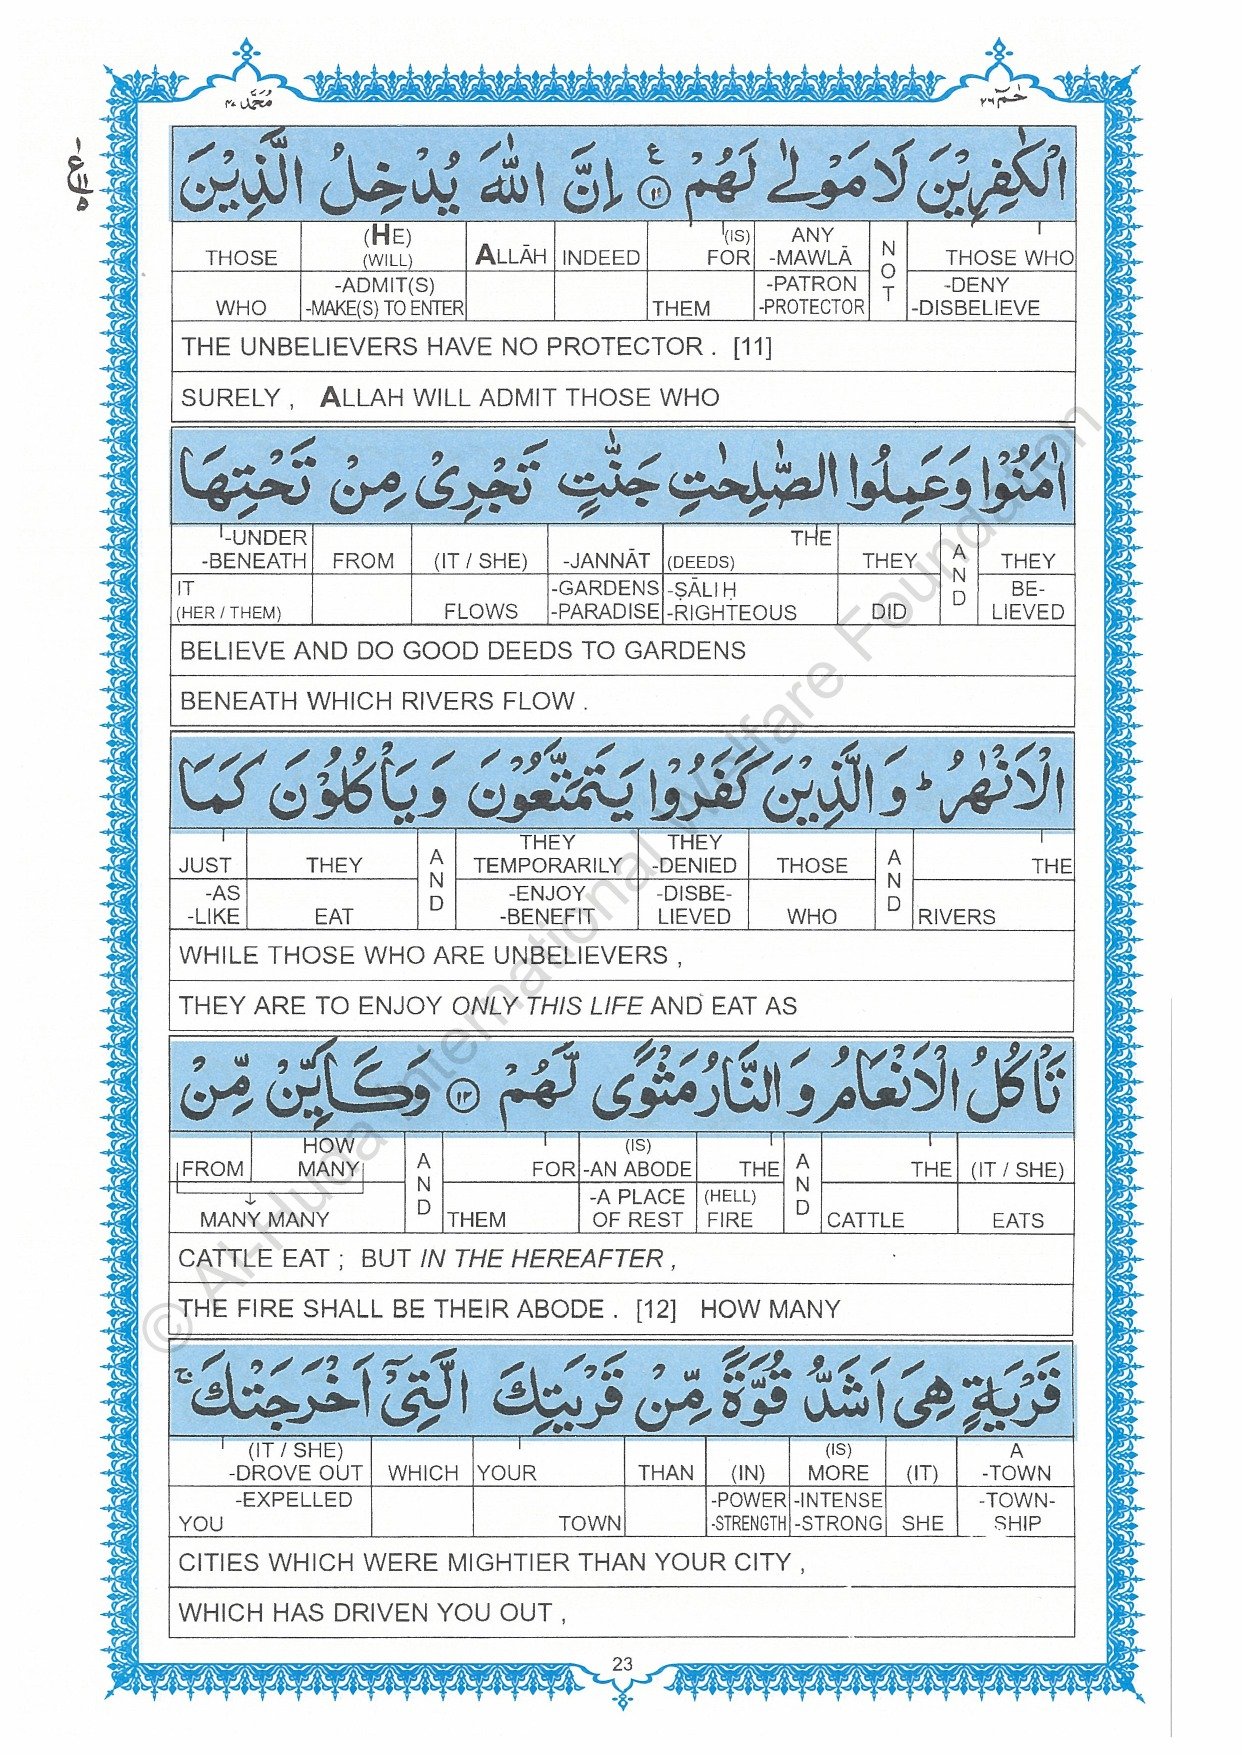 مُحَمَّد ٤٧
حٰمٓ ٢٦
الْكٰفِرِيْنَ لَا مَوْلٰى لَهُمْ ۝١١ ع اِنَّ اللّٰهَ يُدْخِلُ الَّذِيْنَ
THOSE (HE) (WILL) ALLĀH INDEED (IS) FOR ANY -MAWLĀ NOT THOSE WHO
WHO -ADMIT(S) -MAKE(S) TO ENTER THEM -PATRON -PROTECTOR -DENY -DISBELIEVE
THE UNBELIEVERS HAVE NO PROTECTOR . [11]
SURELY , ALLAH WILL ADMIT THOSE WHO
اٰمَنُوْا وَعَمِلُوا الصّٰلِحٰتِ جَنّٰتٍ تَجْرِيْ مِنْ تَحْتِهَا
-UNDER -BENEATH FROM (IT / SHE) -JANNĀT (DEEDS) THE THEY AND THEY
IT (HER / THEM) FLOWS -GARDENS -PARADISE -ṢĀLIḤ -RIGHTEOUS DID BE- LIEVED
BELIEVE AND DO GOOD DEEDS TO GARDENS
BENEATH WHICH RIVERS FLOW .
الْاَنْهٰرُ ؕ وَالَّذِيْنَ كَفَرُوْا يَتَمَتَّعُوْنَ وَيَاْكُلُوْنَ كَمَا
JUST THEY AND THEY TEMPORARILY THEY -DENIED THOSE AND THE
-AS -LIKE EAT -ENJOY -BENEFIT -DISBE- LIEVED WHO RIVERS
WHILE THOSE WHO ARE UNBELIEVERS ,
THEY ARE TO ENJOY ONLY THIS LIFE AND EAT AS
تَاْكُلُ الْاَنْعَامُ وَالنَّارُ مَثْوًى لَّهُمْ ۝١٢ وَكَاَيِّنْ مِّنْ
FROM HOW MANY AND FOR (IS) -AN ABODE THE AND THE (IT / SHE)
MANY MANY THEM -A PLACE OF REST (HELL) FIRE CATTLE EATS
CATTLE EAT ; BUT IN THE HEREAFTER ,
THE FIRE SHALL BE THEIR ABODE . [12] HOW MANY
قَرْيَةٍ هِيَ اَشَدُّ قُوَّةً مِّنْ قَرْيَتِكَ الَّتِيْٓ اَخْرَجَتْكَ ۚ
(IT / SHE) -DROVE OUT WHICH YOUR THAN (IN) (IS) MORE (IT) A -TOWN
YOU -EXPELLED TOWN -POWER -STRENGTH -INTENSE -STRONG SHE -TOWN- SHIP
CITIES WHICH WERE MIGHTIER THAN YOUR CITY ,
WHICH HAS DRIVEN YOU OUT ,
23
© Al-Huda International Welfare Foundation